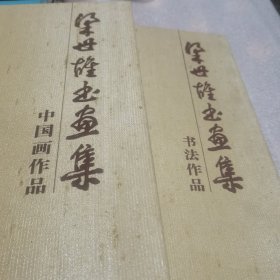 梁世雄书画集
中国画作品
梁世雄书画集
书法作品